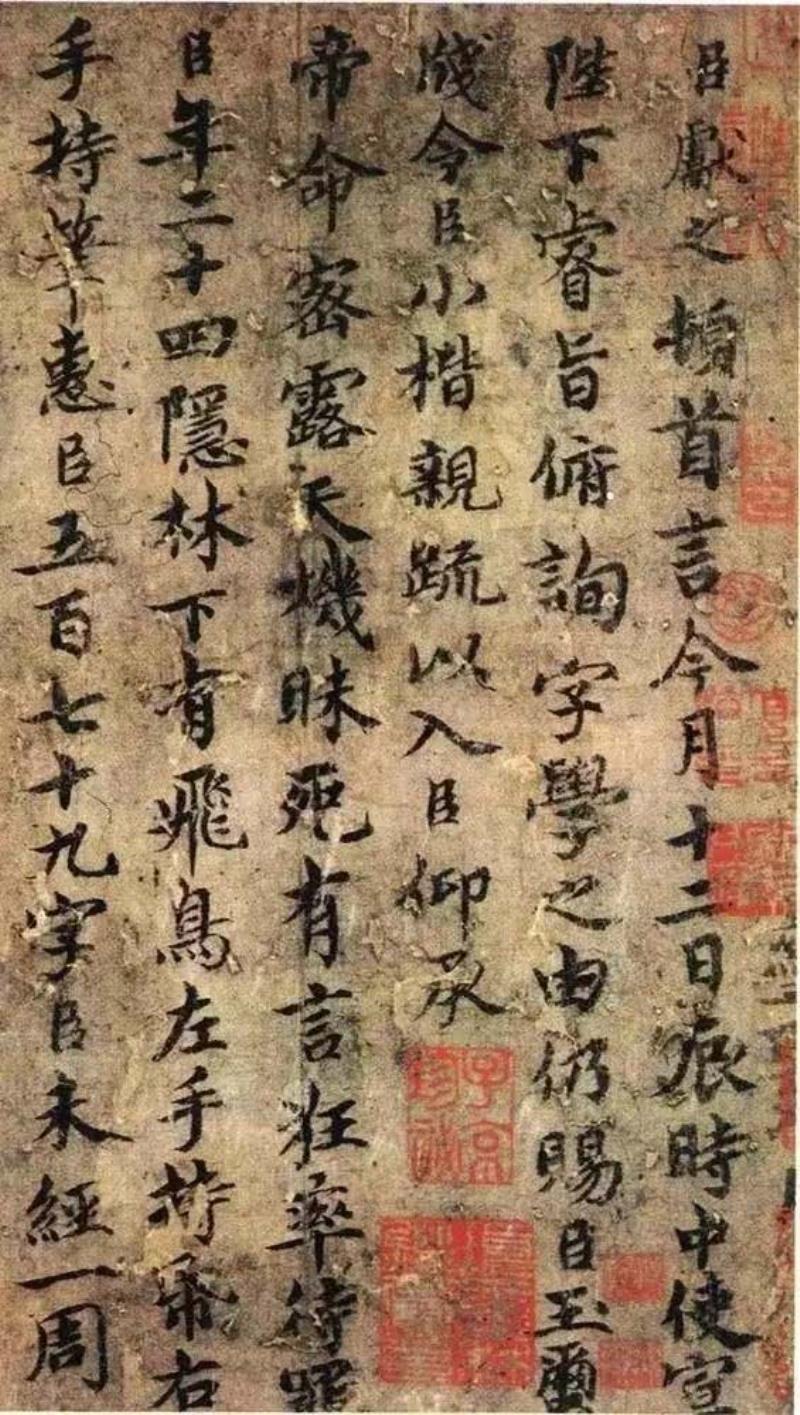 臣獻之頓首言今月十二日辰時中使宣
陛下睿旨俯詢字學之由仍賜臣玉璽
牋令臣小楷親疏以入臣仰承
帝命密露天機昧死有言狂率待罪
臣年二十四隱林下有飛鳥左手持帋右
手持筆惠臣五百七十九字臣未經一周
子京
珍祕